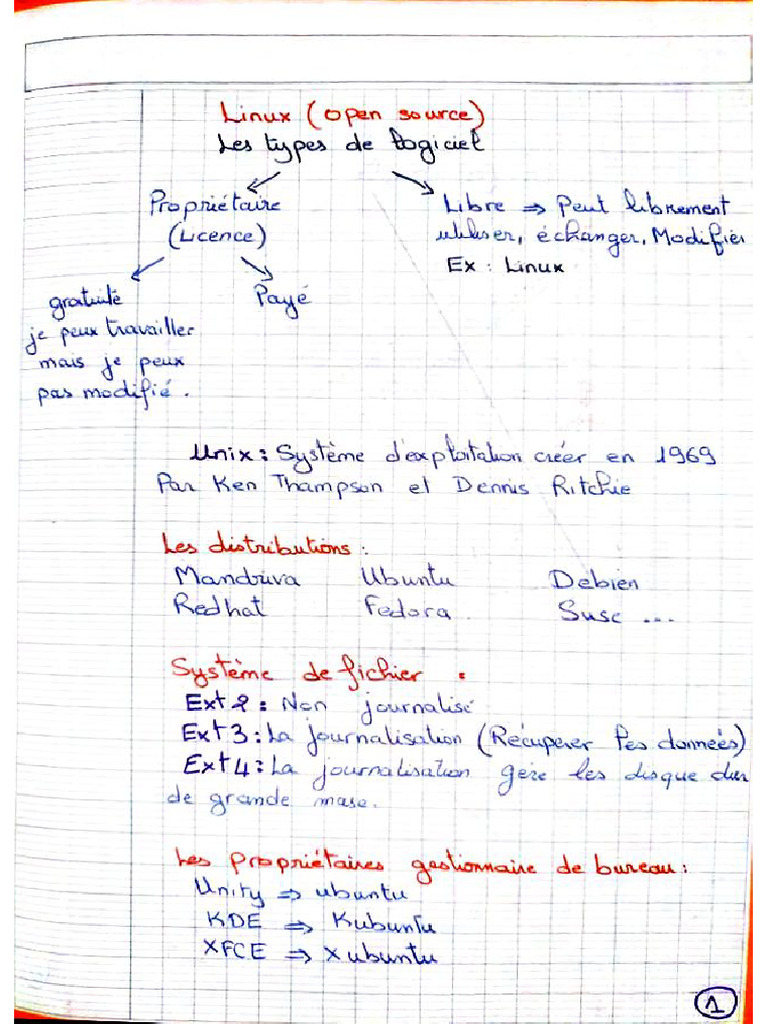 Linux (open source)
Les types de logiciel
Propriétaire
(Licence)
Libre => Peut librement
utiliser, échanger, Modifier
Ex : Linux
gratuité
je peux travailler
mais je peux
pas modifié.
Payé
Unix : Système d'exploitation créer en 1969
Par Ken Thampson et Dennis Ritchie
Les distributions :
Mandriva Ubuntu Debien
Redhat Fedora Suse ...
Système de fichier :
Ext2 : Non journalisé
Ext3 : La journalisation (Récuperer les données)
Ext4 : La journalisation gère les disque dur
de grande mase.
Les propriétaires gestionnaire de bureau :
Unity => ubuntu
KDE => Kubuntu
XFCE => Xubuntu
1